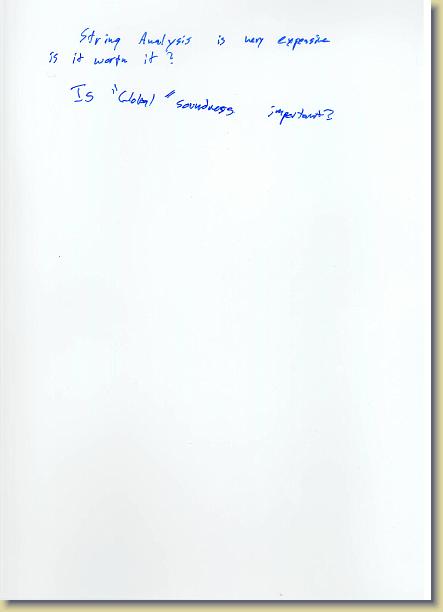 String Analysis is very expensive
is it worth it?
Is "Global" soundness important?